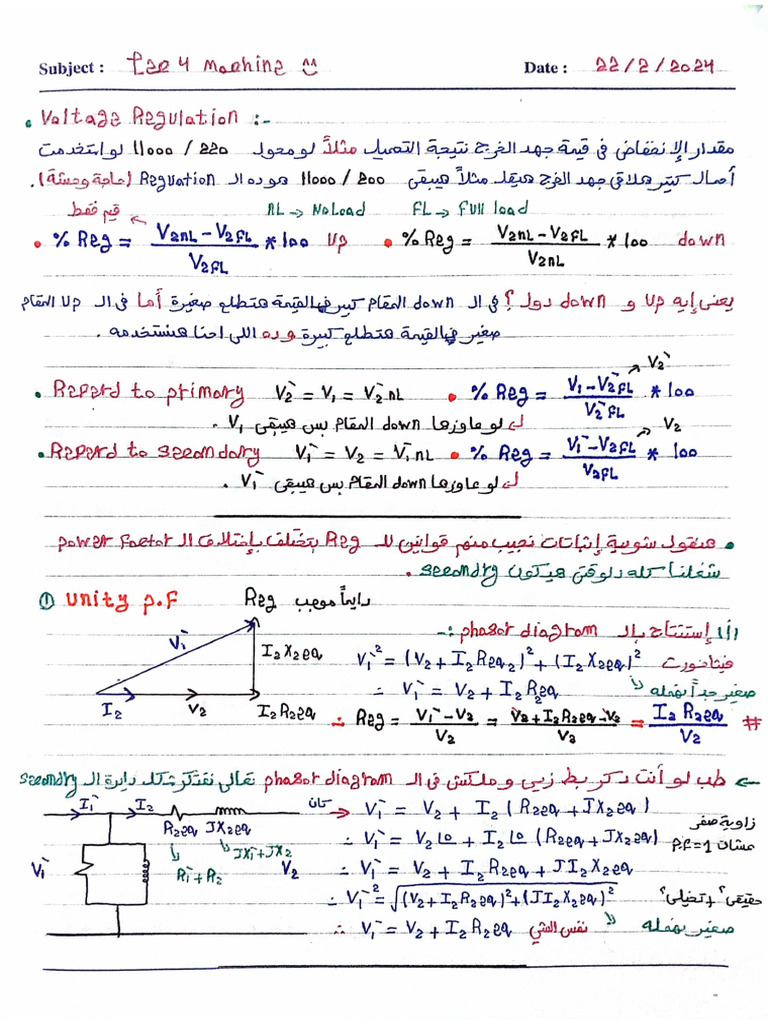 Subject : Lec 4 Machine Date : 22/2/2024
• Voltage Regulation :-
مقدار الإنخفاض في قيمة جهد الخرج نتيجة التحميل مثلاً لو محول 11000 / 220 لو استخدمت
أحمال كتير هلاقي جهد الخرج هيقل مثلاً هيبقى 11000 / 200 هو ده الـ Reguation (حاجة وحشة).
NL → No Load FL → Full load قيم فقط
• % Reg = V2NL - V2FL / V2FL * 100 Up • % Reg = V2NL - V2FL / V2NL * 100 down
يعني إيه Up و down دول ؟ في الـ down المقام كبير فالقيمة هتطلع صغيرة أما في الـ Up المقام
صغير فالقيمة هتطلع كبيرة وده اللي احنا هنستخدمه .
• Regard to primary V2` = V1 = V2`NL • % Reg = V1 - V2`FL / V2`FL * 100 → V2`
لو عاوزها down المقام بس هيبقى V1 .
• Regard to secondary V1` = V2 = V1`NL • % Reg = V1` - V2FL / V2FL * 100 → V2
لو عاوزها down المقام بس هيبقى V1` .
• هنقول شوية إثباتات نجيب منهم قوانين للـ Reg بتختلف بإختلاف الـ power factor
شغلنا كله دلوقتي هيكون secondry .
① Unity p.F دايماً موجب Reg
إستنتاج بالـ phasor diagram :-
V1` I2X2eq I2 V2 I2R2eq
فيثاغورث V1`² = (V2 + I2 Req2)² + (I2 X2eq)²
∴ V1` = V2 + I2 Req صغير جداً نهمله
∴ Reg = V1` - V2 / V2 = V2 + I2 R2eq - V2 / V2 = I2 R2eq / V2 #
← طب لو أنت دكر بط زيي وملكش في الـ phasor diagram تعالى نفتكر شكل دايرة الـ secondry
I1` I2 R2eq JX2eq R1` + R2 JX1` + JX2 V1` V2
كان → V1` = V2 + I2 (R2eq + JX2eq)
∴ V1` = V2∠0 + I2∠0 (R2eq + JX2eq) زاوية صفر عشان P.F = 1
∴ V1` = V2 + I2 R2eq + JI2 X2eq
∴ V1`² = √(V2 + I2 R2eq)² + (JI2 X2eq)² حقيقي² + تخيلي²
∴ V1` = V2 + I2 R2eq نفس الشئ صغير نهمله